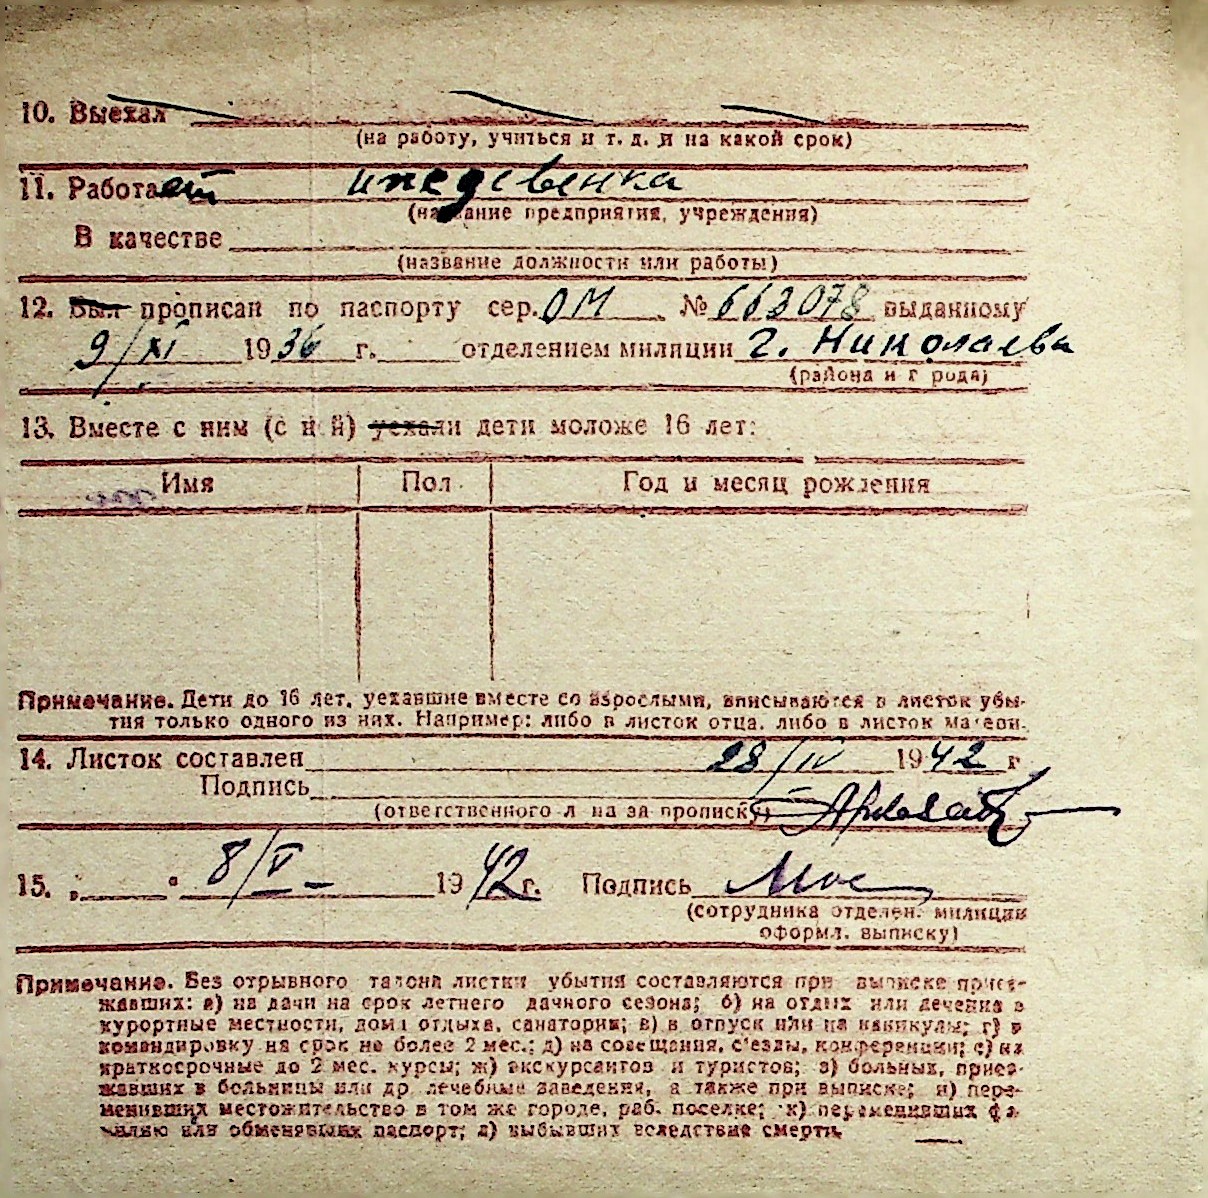 10. Выехал
(на работу, учиться и т. д. и на какой срок)
11. Работает иждевенка
(название предприятия, учреждения)
В качестве
(название должности или работы)
12. Был прописан по паспорту сер. ОМ № 663078 выданному
9/XI 1936 г. отделением милиции г. Николаева
(района и города)
13. Вместе с ним (с ней) уехали дети моложе 16 лет:
Имя Пол Год и месяц рождения
Примечание. Дети до 16 лет, уехавшие вместе со взрослыми, вписываются в листок убы-
тия только одного из них. Например: либо в листок отца, либо в листок матери.
14. Листок составлен 28/IV 1942 г
Подпись
(ответственного л на за прописку)
15. „ " 8/V 1942 г. Подпись
(сотрудника отделен. милиции
оформл. выписку)
Примечание. Без отрывного талона листки убытия составляются при выписке приез-
жавших: а) на дачи на срок летнего дачного сезона; б) на отдых или лечение в
курортные местности, дома отдыха, санатории; в) в отпуск или на каникулы; г) в
командировку на срок не более 2 мес.; д) на совещания, с'езды, конференции; е) на
краткосрочные до 2 мес. курсы; ж) экскурсантов и туристов; з) больных, приез-
жавших в больницы или др лечебные заведения, а также при выписке; и) пере-
менивших местожительство в том же городе, раб. поселке; к) переменивших фа-
милию или обменявших паспорт; л) выбывших вследствие смерти.